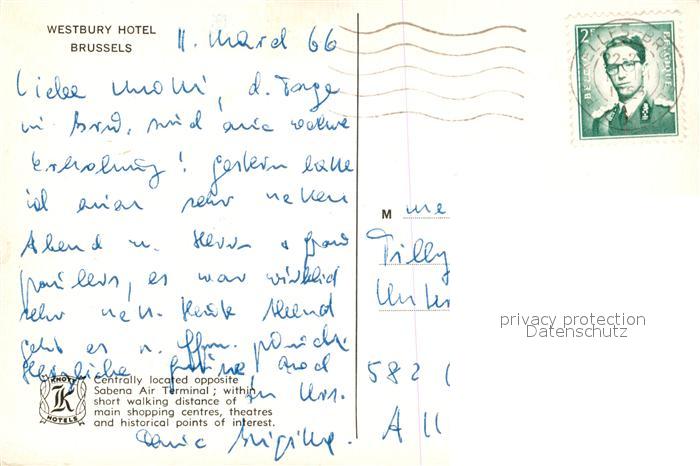 WESTBURY HOTEL
BRUSSELS
11. March 66
Liebe Mutti, d. Tage
in Brüs. sind eine wahre
Erholung! Gestern hatte
ich einen sehr netten
Abend m. Herrn + Frau
es war wirklich
sehr nett. Heute Abend
geht es n. Ffm. zurück.
Herzliche Grüsse and
Deine Brigitte.
Centrally located opposite
Sabena Air Terminal; within
short walking distance of
main shopping centres, theatres
and historical points of interest.
KNOTT
K
HOTELS
2F
BELGIE
BELGIQUE
Mme
Tilly
582
All
privacy protection
Datenschutz